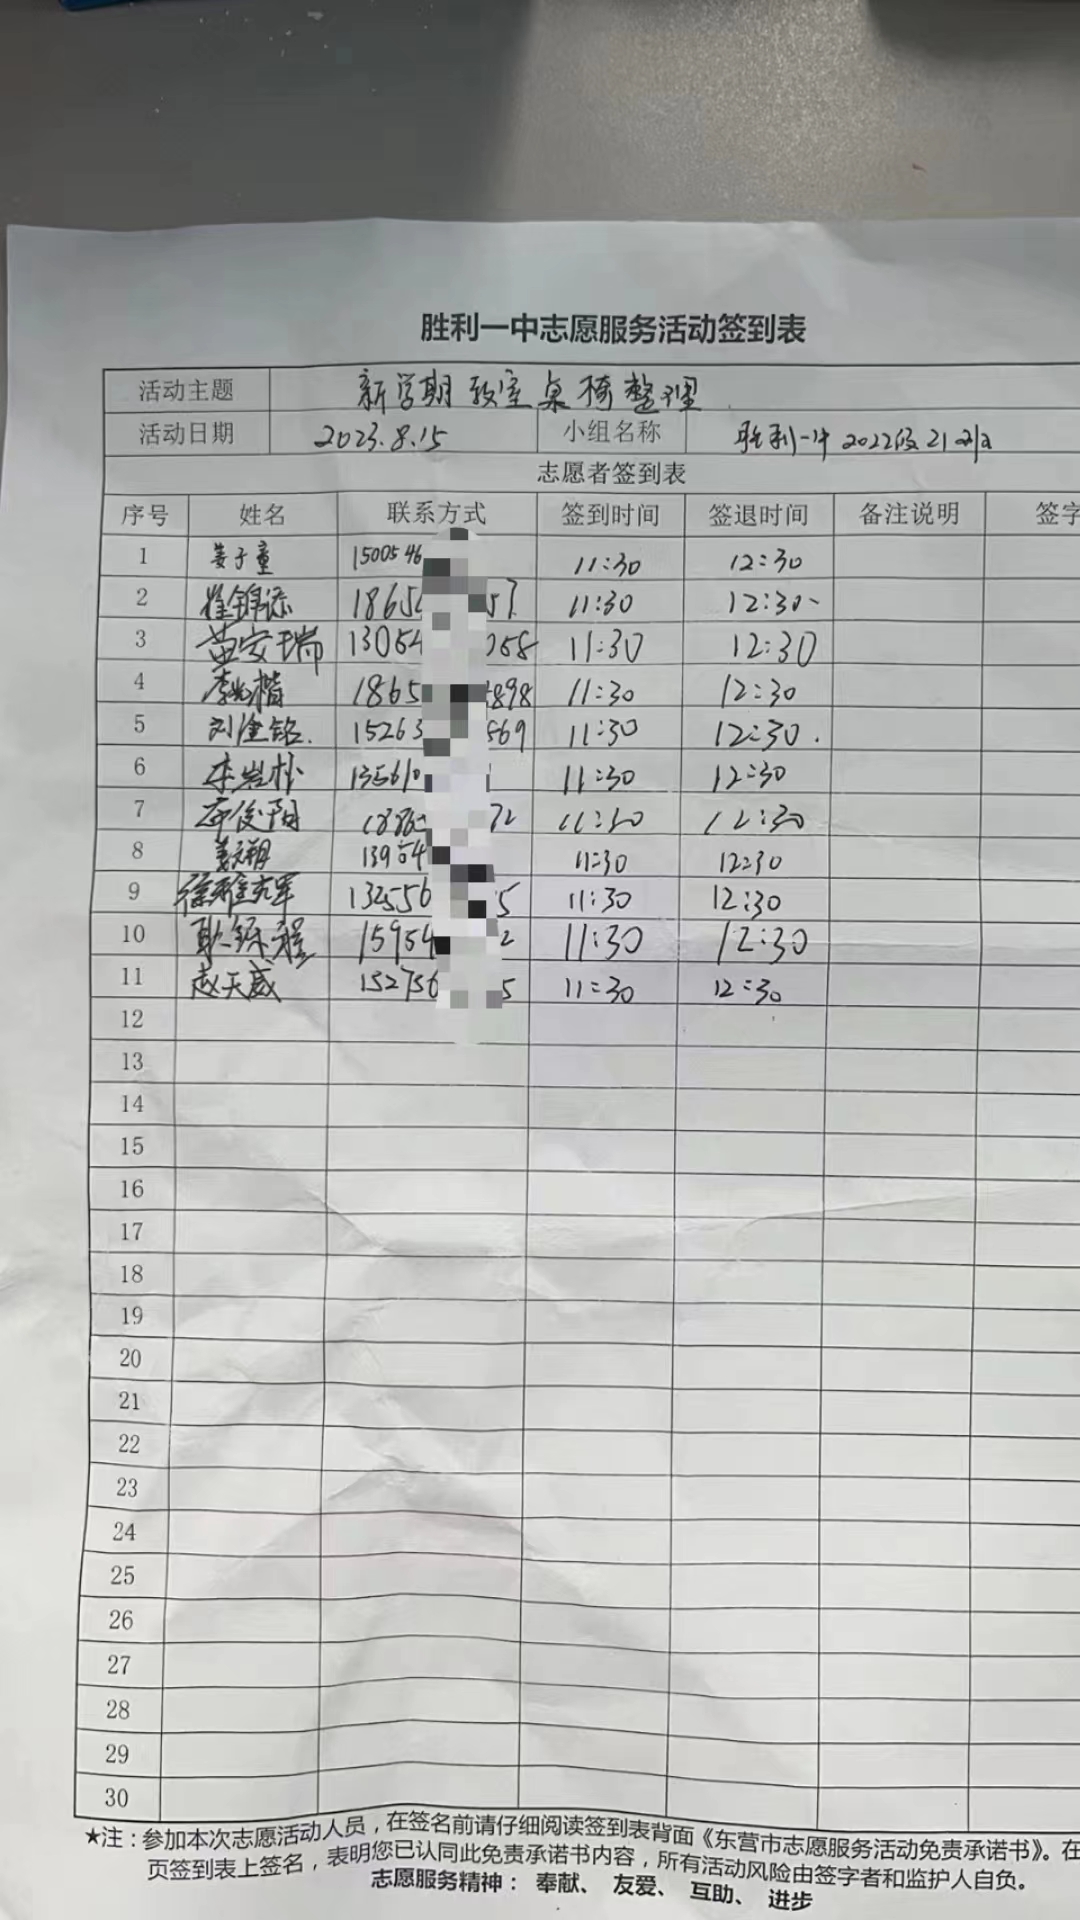 胜利一中志愿服务活动签到表
活动主题 新学期教室桌椅整理
活动日期 2023.8.15 小组名称 胜利一中2022级21
志愿者签到表
序号 姓名 联系方式 签到时间 签退时间 备注说明 签字
1 姜子童 1500546 11:30 12:30
2 崔锦添 1865 57 11:30 12:30
3 苗安瑞 13054 058 11:30 12:30
4 1865 898 11:30 12:30
5 刘淦铭 15263 569 11:30 12:30
6 135610 11:30 12:30
7 俊阳 72 11:30 12:30
8 13954 11:30 12:30
9 132556 5 11:30 12:30
10 耿 程 15954 2 11:30 12:30
11 赵天威 152736 5 11:30 12:30
12
13
14
15
16
17
18
19
20
21
22
23
24
25
26
27
28
29
30
★注：参加本次志愿活动人员，在签名前请仔细阅读签到表背面《东营市志愿服务活动免责承诺书》。在
页签到表上签名，表明您已认同此免责承诺书内容，所有活动风险由签字者和监护人自负。
志愿服务精神： 奉献、 友爱、 互助、 进步